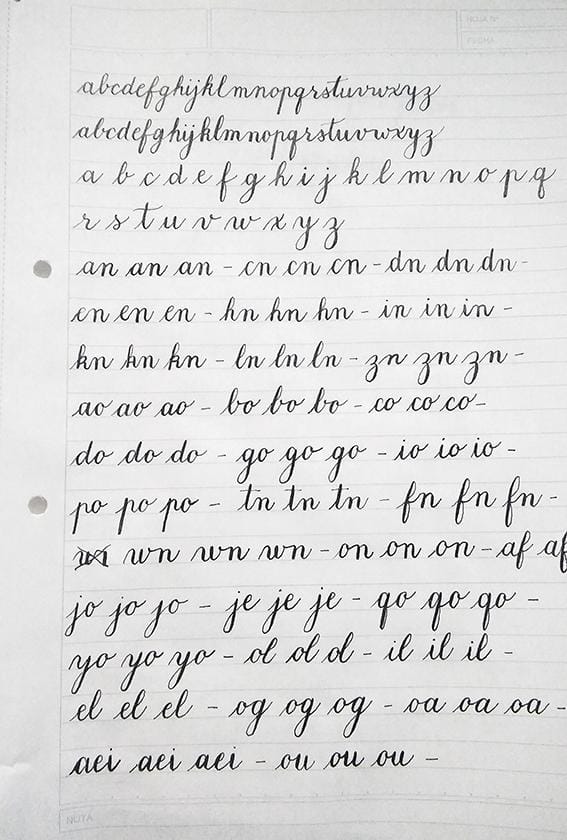 HOJA Nº
FECHA
abcdefghijklmnopqrstuvwxyz
abcdefghijklmnopqrstuvwxyz
a b c d e f g h i j k l m n o p q
r s t u v w x y z
an an an - cn cn cn - dn dn dn -
en en en - hn hn hn - in in in -
kn kn kn - ln ln ln - zn zn zn -
ao ao ao - bo bo bo - co co co -
do do do - go go go - io io io -
po po po - tn tn tn - fn fn fn -
wn wn wn - on on on - af af
jo jo jo - je je je - qo qo qo -
yo yo yo - ol ol ol - il il il -
el el el - og og og - oa oa oa -
aei aei aei - ou ou ou -
NOTA